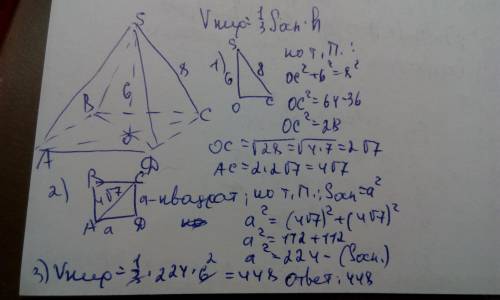 Vпир=1/3 Sосн·h
S
6
8
B
C
A
D
1)
S
6
8
O
C
по т. П.:
OC²+6²=8²
OC²=64-36
OC²=28
OC=√28=√4·7=2√7
AC=2·2√7=4√7
2)
B
C
4√7
a-квадрат; по т. П.; Sосн=a²
A
a
D
a²=(4√7)²+(4√7)²
a²=112+112
a²=224-(Sосн.)
3) Vпир=1/3·224·6²=448
Ответ: 448